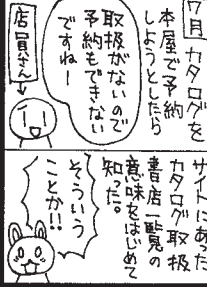 7月 カタログを
本屋で予約
しようとしたら
取扱がないので
予約もできない
ですねー
店員さん
サイトにあった
カタログ取扱
書店一覧の
意味をはじめて
知った。
そういう
ことか!!